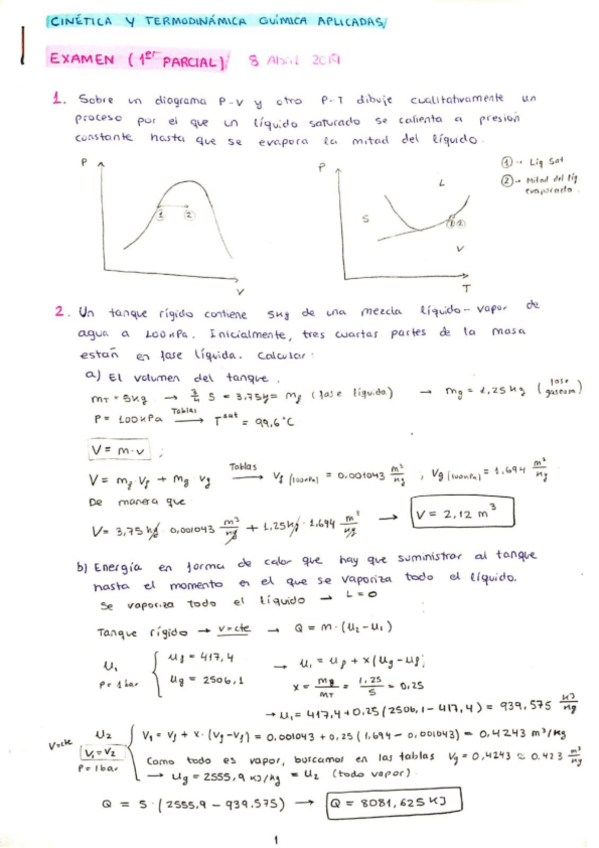 CINÉTICA Y TERMODINÁMICA QUÍMICA APLICADAS
EXAMEN (1er PARCIAL) 8 Abril 2019
1. Sobre un diagrama P-V y otro P-T dibuje cualitativamente un
proceso por el que un líquido saturado se calienta a presión
constante hasta que se evapora la mitad del líquido.
P
V
① ②
P
T
S
L
V
① ②
① → Liq Sat
② → Mitad del líq
evaporado.
2. Un tanque rígido contiene 5kg de una mezcla líquido-vapor de
agua a 100kPa. Inicialmente, tres cuartas partes de la masa
están en fase líquida. Calcular:
a) El volumen del tanque.
mT = 5kg → 3/4 5 = 3,75kg = mf (fase líquida) → mg = 1,25kg (fase gaseosa)
P = 100kPa Tablas → Tsat = 99,6°C
V = m·v ;
V = mf vf + mg vg Tablas → vf (100kPa) = 0,001043 m³/kg , vg (100kPa) = 1,694 m³/kg
De manera que
V = 3,75 kg · 0,001043 m³/kg + 1,25kg · 1,694 m³/kg → V = 2,12 m³
b) Energía en forma de calor que hay que suministrar al tanque
hasta el momento en el que se vaporiza todo el líquido.
Se vaporiza todo el líquido → L=0
Tanque rígido → v=cte → Q = m·(u2-u1)
u1
P = 1 bar
uf = 417,4
ug = 2506,1
→ u1 = uf + x(ug-uf);
x = mg/mT = 1,25/5 = 0,25
→ u1 = 417,4 + 0,25(2506,1 - 417,4) = 939,575 kJ/kg
V=cte
u2
V1 = V2
P = 1bar
V1 = vf + x·(vg-vf) = 0,001043 + 0,25(1,694 - 0,001043) = 0,4243 m³/kg
Como todo es vapor, buscamos en las tablas vg = 0,4243 ≈ 0,423 m³/kg
→ ug = 2555,9 kJ/kg = u2 (todo vapor)
Q = 5·(2555,9 - 939,575) → Q = 8081,625 kJ
1